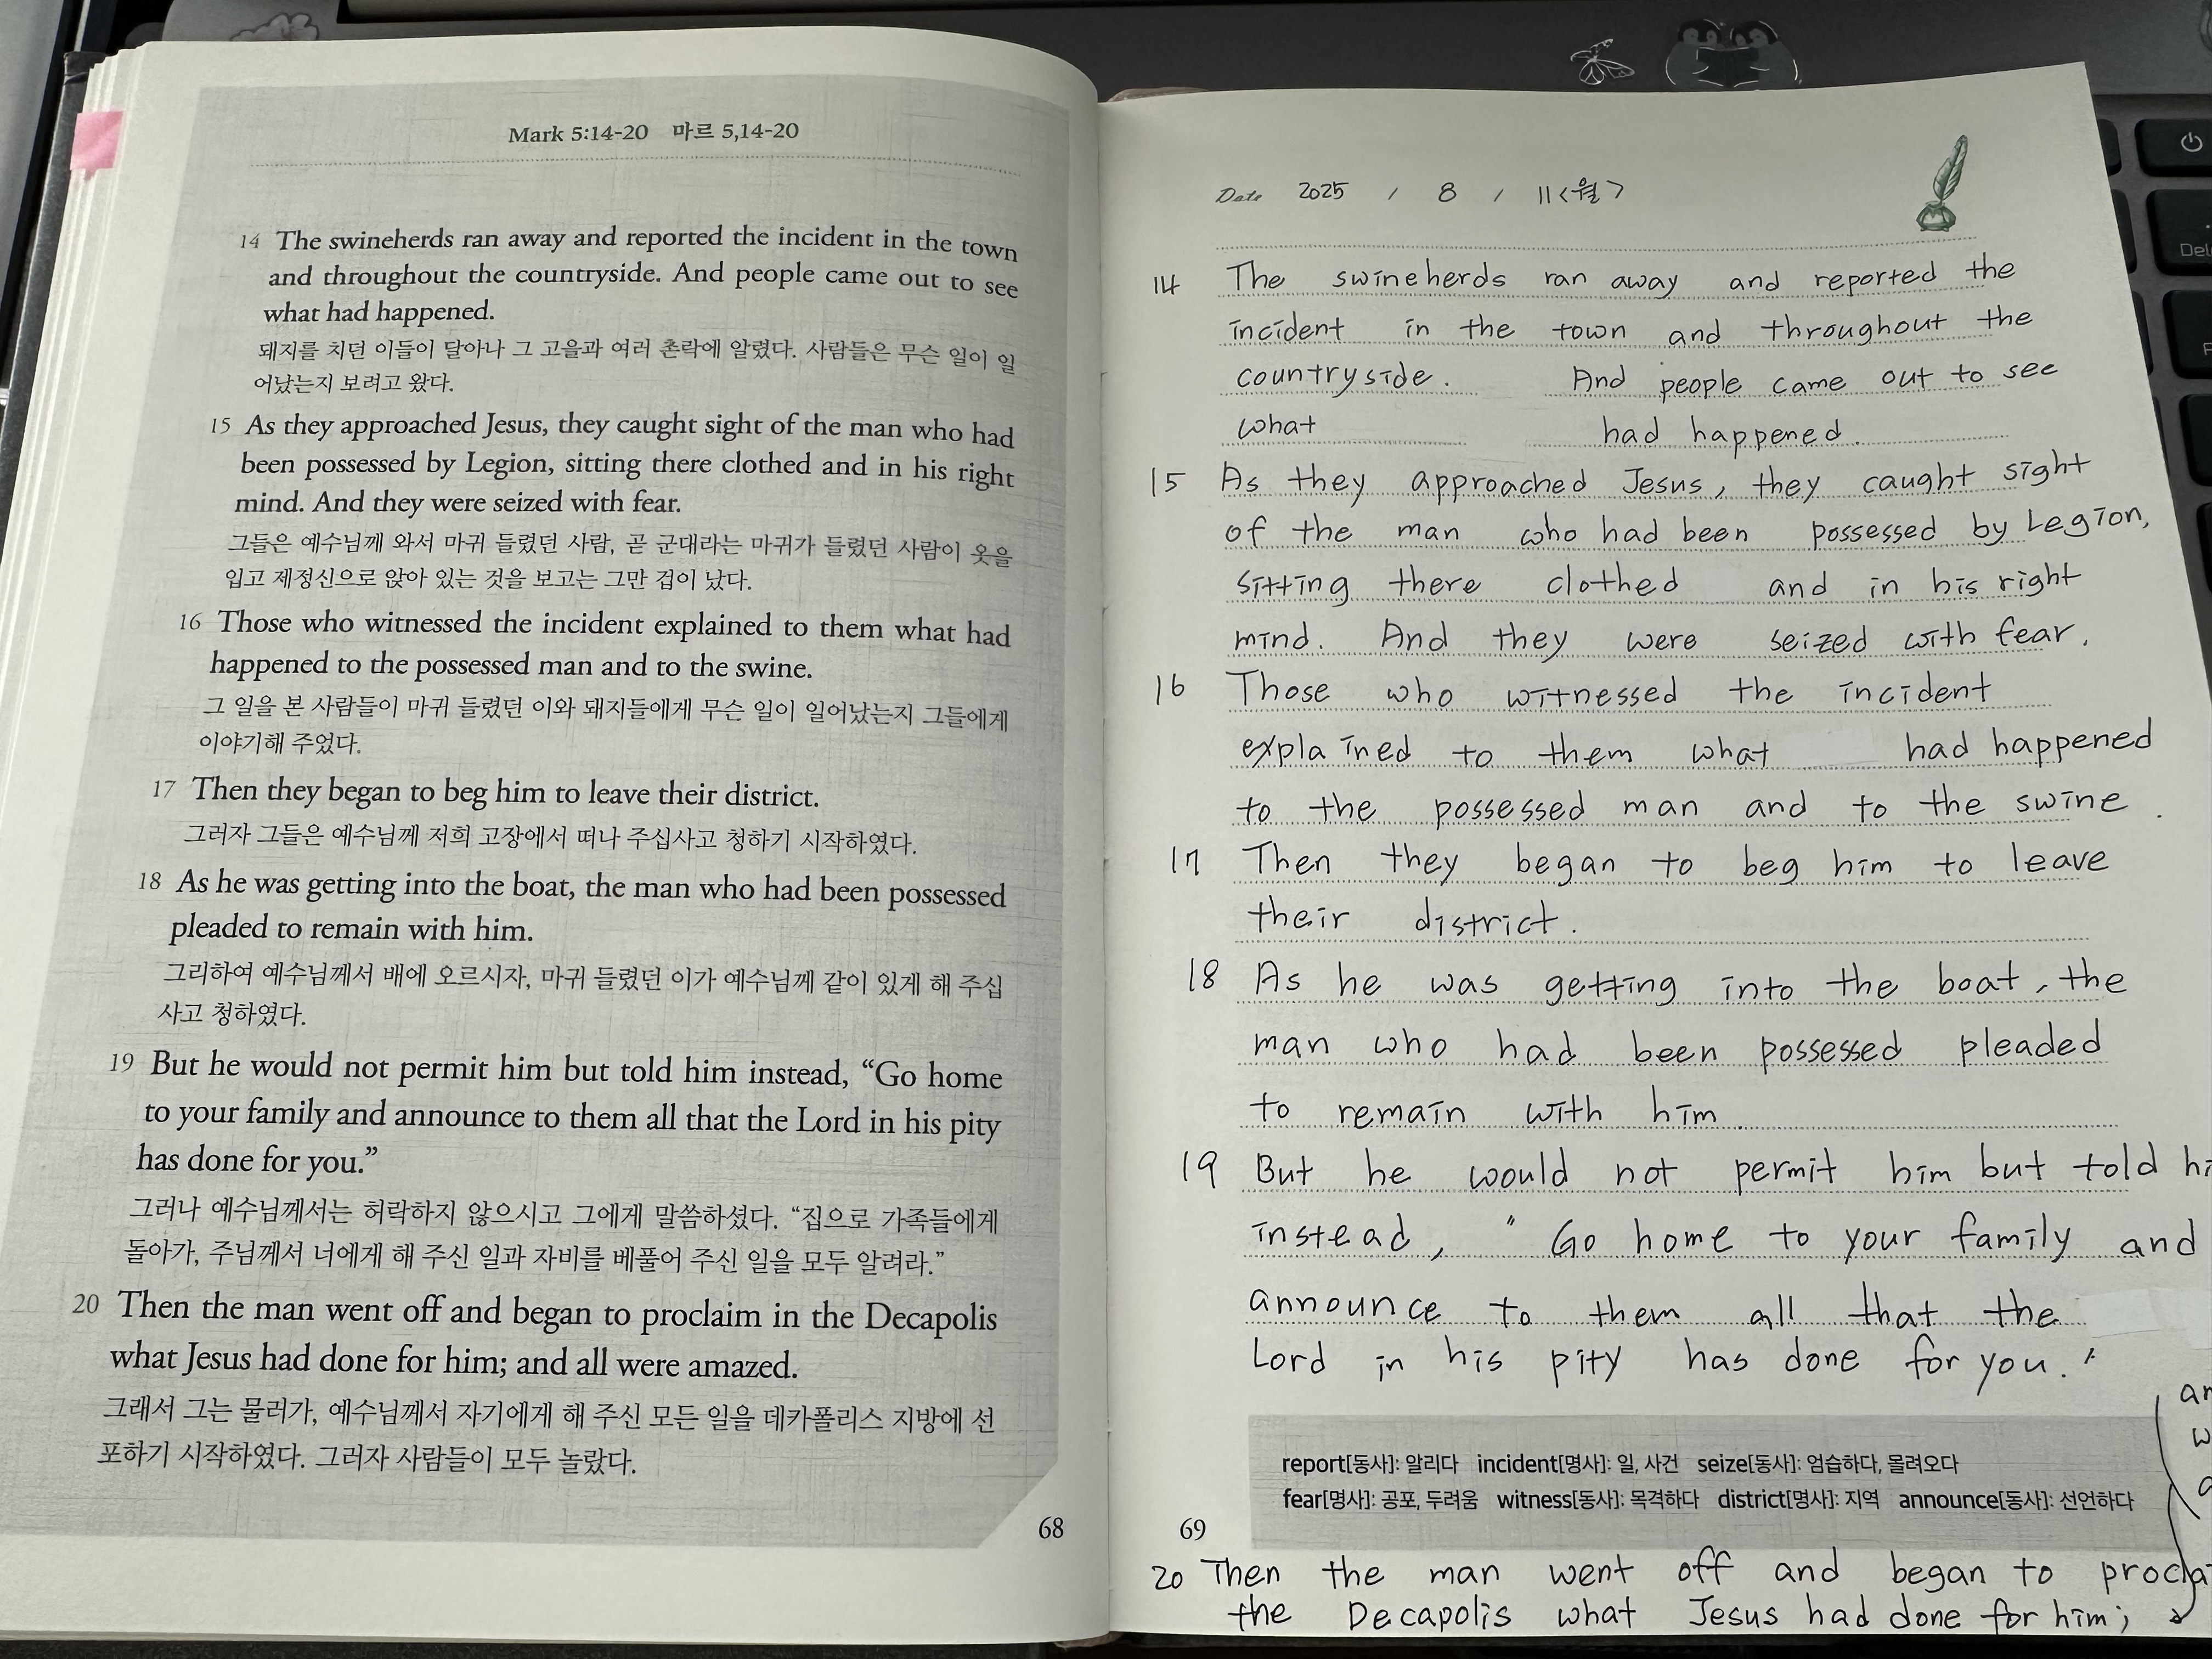 Mark 5:14-20 마르 5,14-20
14 The swineherds ran away and reported the incident in the town
and throughout the countryside. And people came out to see
what had happened.
돼지를 치던 이들이 달아나 그 고을과 여러 촌락에 알렸다. 사람들은 무슨 일이 일
어났는지 보려고 왔다.
15 As they approached Jesus, they caught sight of the man who had
been possessed by Legion, sitting there clothed and in his right
mind. And they were seized with fear.
그들은 예수님께 와서 마귀 들렸던 사람, 곧 군대라는 마귀가 들렸던 사람이 옷을
입고 제정신으로 앉아 있는 것을 보고는 그만 겁이 났다.
16 Those who witnessed the incident explained to them what had
happened to the possessed man and to the swine.
그 일을 본 사람들이 마귀 들렸던 이와 돼지들에게 무슨 일이 일어났는지 그들에게
이야기해 주었다.
17 Then they began to beg him to leave their district.
그러자 그들은 예수님께 저희 고장에서 떠나 주십사고 청하기 시작하였다.
18 As he was getting into the boat, the man who had been possessed
pleaded to remain with him.
그리하여 예수님께서 배에 오르시자, 마귀 들렸던 이가 예수님께 같이 있게 해 주십
사고 청하였다.
19 But he would not permit him but told him instead, “Go home
to your family and announce to them all that the Lord in his pity
has done for you.”
그러나 예수님께서는 허락하지 않으시고 그에게 말씀하셨다. “집으로 가족들에게
돌아가, 주님께서 너에게 해 주신 일과 자비를 베풀어 주신 일을 모두 알려라.”
20 Then the man went off and began to proclaim in the Decapolis
what Jesus had done for him; and all were amazed.
그래서 그는 물러가, 예수님께서 자기에게 해 주신 모든 일을 데카폴리스 지방에 선
포하기 시작하였다. 그러자 사람들이 모두 놀랐다.
68
Date 2025 / 8 / 11 <월>
14 The swineherds ran away and reported the
incident in the town and throughout the
countryside. And people came out to see
what had happened.
15 As they approached Jesus, they caught sight
of the man who had been possessed by Legion,
sitting there clothed and in his right
mind. And they were seized with fear.
16 Those who witnessed the incident
explained to them what had happened
to the possessed man and to the swine.
17 Then they began to beg him to leave
their district.
18 As he was getting into the boat, the
man who had been possessed pleaded
to remain with him
19 But he would not permit him but told
instead, " Go home to your family and
announce to them all that the
Lord in his pity has done for you."
report[동사]: 알리다 incident[명사]: 일, 사건 seize[동사]: 엄습하다, 몰려오다
fear[명사]: 공포, 두려움 witness[동사]: 목격하다 district[명사]: 지역 announce[동사]: 선언하다
69
20 Then the man went off and began to
the Decapolis what Jesus had done for him;